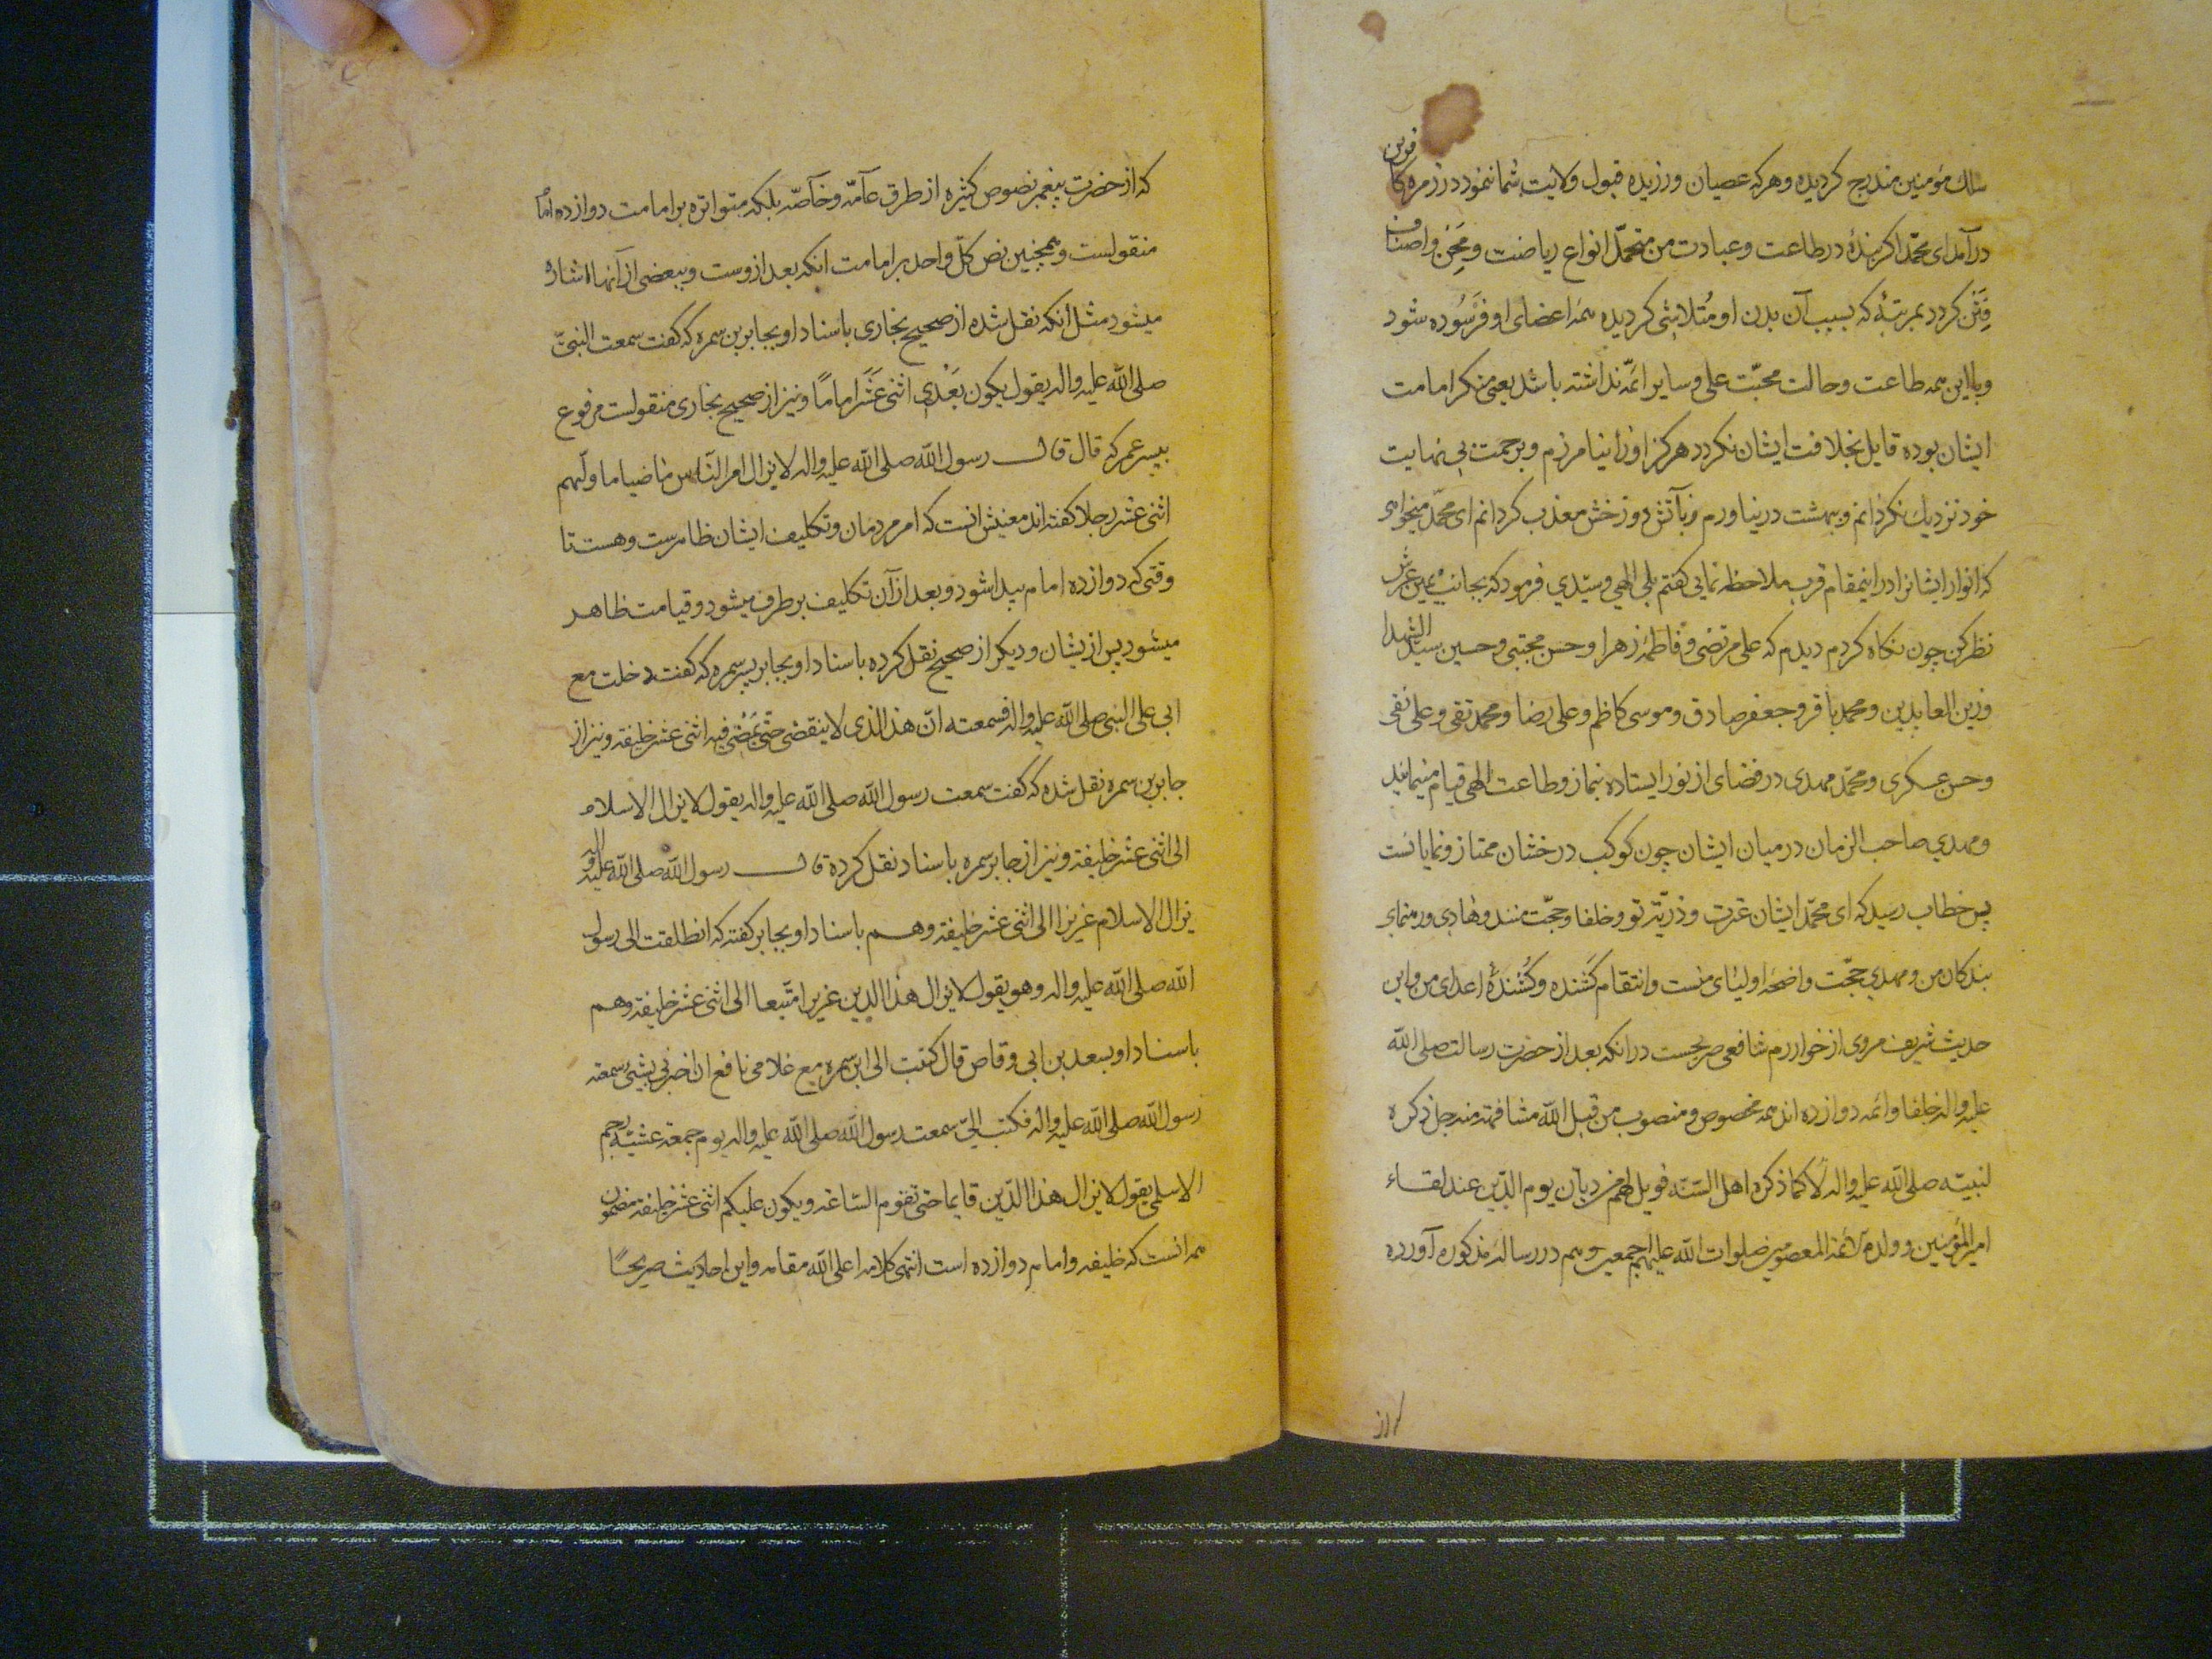 سلك مؤمنین مندرج کردیده وهرکه عصیان ورزیده قبول ولایت شما ننمود در زمره کافرین
درآمد ای محمّد اکر بندهٔ در طاعت وعبادت من متحمّل انواع ریاضت ومِحَن واصناف
فِتَن کردد بمرتبهٔ که بسبب آن بدن او مُتلاشی کردیده همه اعضای او فَرسُوده شود
وبااین همه طاعت وحالت محبّت علی وسایر ائمّه نداشته باشد یعنی منکر امامت
ایشان بوده قایل بخلافت ایشان نکردد هرکز اورا نیامرزم وبرحمت بی نهایت
خود نزدیك نکردانم وببهشت درنیاورم وبآتش دوزخش معذب کردانم ای محمّد میخواهی
که انوار ایشانرا دراینمقام قرب ملاحظه نمایی کفتم بلی الهی وسیّدي فرمود که بجانب یمین عرش
نظر کن چون نکاه کردم دیدم که علی مرتضی وفاطمهٔ زهرا وحسن مجتبی وحسین سید الشهدا
وزین العابدین ومحمد باقر وجعفر صادق وموسی کاظم وعلی رضا ومحمد تقی وعلی نقی
وحسن عسکری ومحمّد مهدی در فضای از نور ایستاده بنماز وطاعت الهی قیام مینمایند
ومهدي صاحب الزمان در میان ایشان چون کوکب درخشان ممتاز ونمایانست
پس خطاب رسید که ای محمّد ایشان عترت وذریّة تو وخلفا وحجّت منند وهادی ورهنمای
بندکان من ومهدي حجّت واضحهٔ اولیای منست وانتقام کَشنده وکُشندهٔ اعدای من واین
حدیث شریف مروی از خوارزم شافعی صریحست درانکه بعد از حضرت رسالت صلی الله
علیه واله خلفا وائمه دوازده اند همه مخصوص ومنصوب من قبل الله مشافهة منه جل ذکره
لنبیّه صلی الله علیه واله لا کما ذکره اهل السنّة فویل لهم من دیّان یوم الدّین عند لقاء
امیرالمؤمنین وولده الائمة المعصومین صلوات الله علیهم اجمعین وهم در رساله مذکوره آورده
که از
که از حضرت پیغمبر نصوص کثیره از طرق عآمّه وخآصّه بلکه متواتره بر امامت دوازده امام
منقولست وهمچنین نص کلّ واحد بر امامت انکه بعد ازوست وببعضی از آنها اشاره
میشود مثل انکه نقل شده از صحیح بخاری باسناد او بجابر بن سمره که کفت سمعت النبیّ
صلی الله علیه واله یقول یکون بَعْدي اثنی عَشَر امامًا ونیز از صحیح بخاری منقولست مرفوع
بپسر عمر که قال قال رسول الله صلی الله علیه واله لا یزال امر النّاس ماضیا ما ولّیهم
اثنی عشر رجلا کفته اند معنیش انست که امر مردمان وتکلیف ایشان ظاهرست وهست تا
وقتی که دوازده امام پیدا شود وبعد ازآن تکلیف برطرف میشود وقیامت ظاهر
میشود پس ازیشان ودیکر از صحیح نقل کرده باسناد او بجابر پسر سمره که کفت دخلت مع
ابی علی النبی صلی الله علیه واله فسمعته انّ هذا الذی لا ینقضی حتّی یَمْضِی فیه اثنی عشر خلیفة ونیز از
جابر بن سمره نقل شده که کفت سمعت رسول الله صلی الله علیه واله یقول لا یزال الاسلام
الی اثنی عشر خلیفة ونیز از جابر سمره باسناد نقل کردة قال رسول الله صلی الله علیه واله
یزال الاسلام عزیزا الی اثنی عشر خلیفة وهم باسناد او بجابر کفته که انطلقت الی رسول
الله صلی الله علیه واله وهو یقول لا یزال هذا الدین عزیرا متّبعا الی اثنی عشر خلیفة وهم
باسناد او بسعد بن ابی وقاص قال کتبت الی ابن سمره مع غلامی نافع ان اخبرنی بشیئ سمعته
رسول الله صلی الله علیه واله فکتب الیّ سمعت رسول الله صلی الله علیه واله یوم جمعة عشیّة رجم
الاسلمی یقول لا یزال هذا الدّین قایما حتی تقوم السّاعة ویکون علیکم اثنی عشر خلیفة مضمون
همه انست که خلیفه وامام دوازده است انتهی کلامه اعلی الله مقامه واین احادیث صریحًا